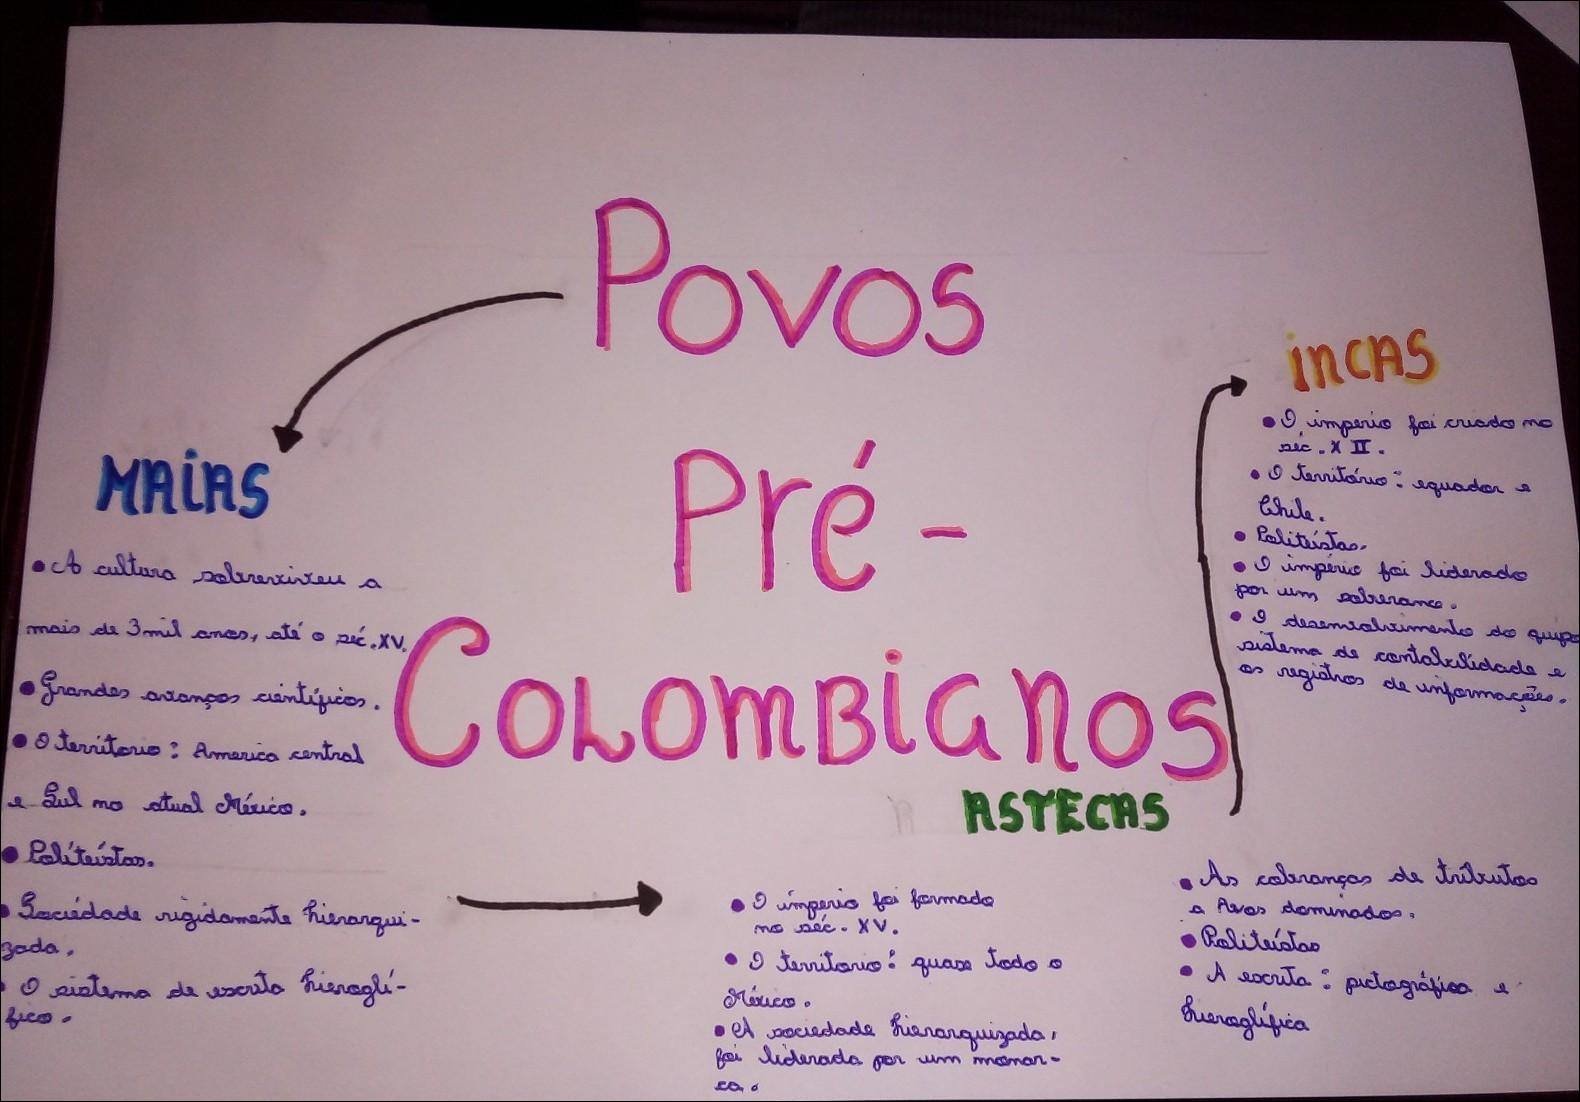 Povos
Pré-
Colombianos
MAiAS
• A cultura sobreviveu a
mais de 3mil anos, até o séc. XV.
• Grandes avanços científicos.
• O territorio: America central
e Sul no atual México.
• Politeístas.
• Sociedade rigidamente hierarqui-
zada.
• O sistema de escrita hieroglí-
fico.
ASTECAS
• O império foi formado
no séc. XV.
• O territorio: quase todo o
México.
• A sociedade hierarquizada,
foi liderada por um monar-
ca.
• As cobranças de tributos
a Povos dominados.
• Politeístas
• A escrita: pictográfica e
hieroglífica
iNCAS
• O imperio foi criado no
séc. X II.
• O território: equador e
Chile.
• Politeístas.
• O império foi liderado
por um soberano.
• O desenvolvimento do quipo
sistema de contabilidade e
os registros de informações.